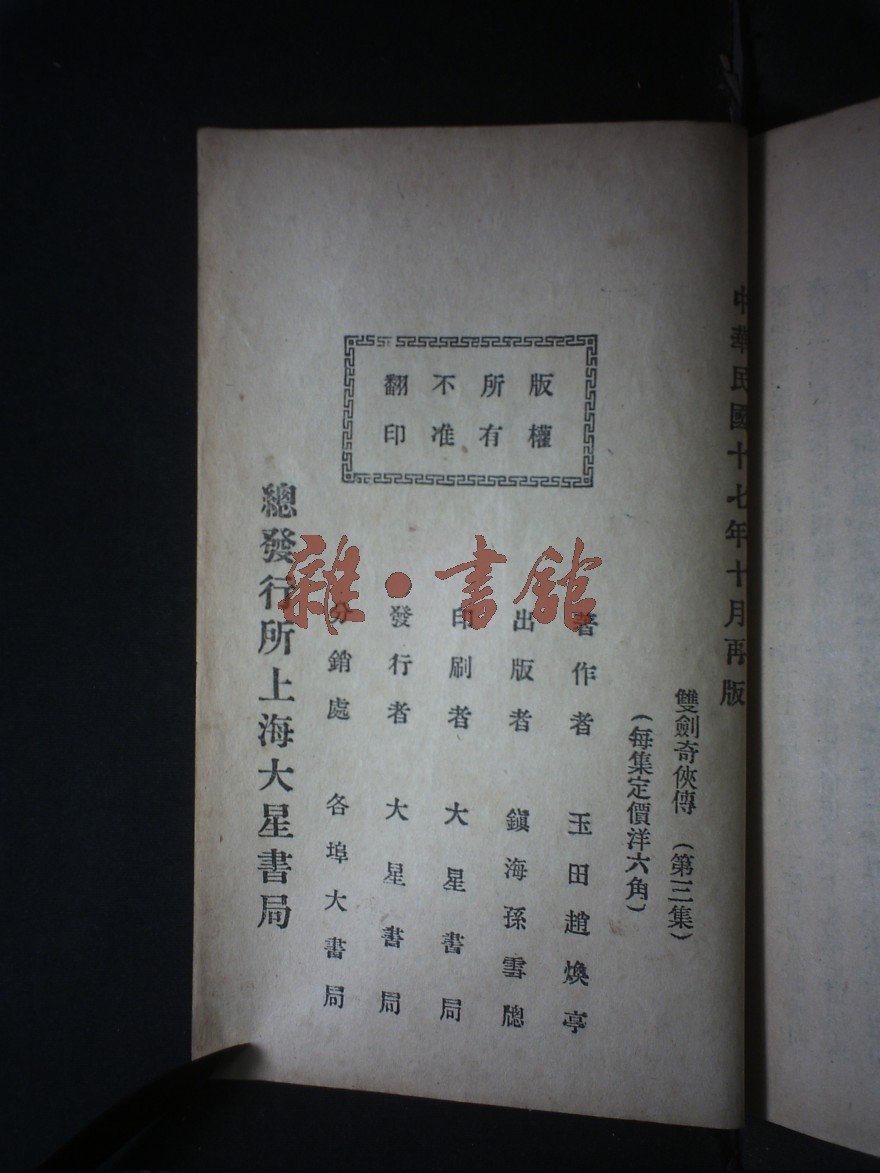 中華民國十七年十月再版
雙劍奇俠傳（第三集）
（每集定價洋六角）
版權所有不准翻印
著作者 玉田趙煥亭
出版者 鎮海孫雲牕
印刷者 大星書局
發行者 大星書局
分銷處 各埠大書局
總發行所上海大星書局
雜·書館